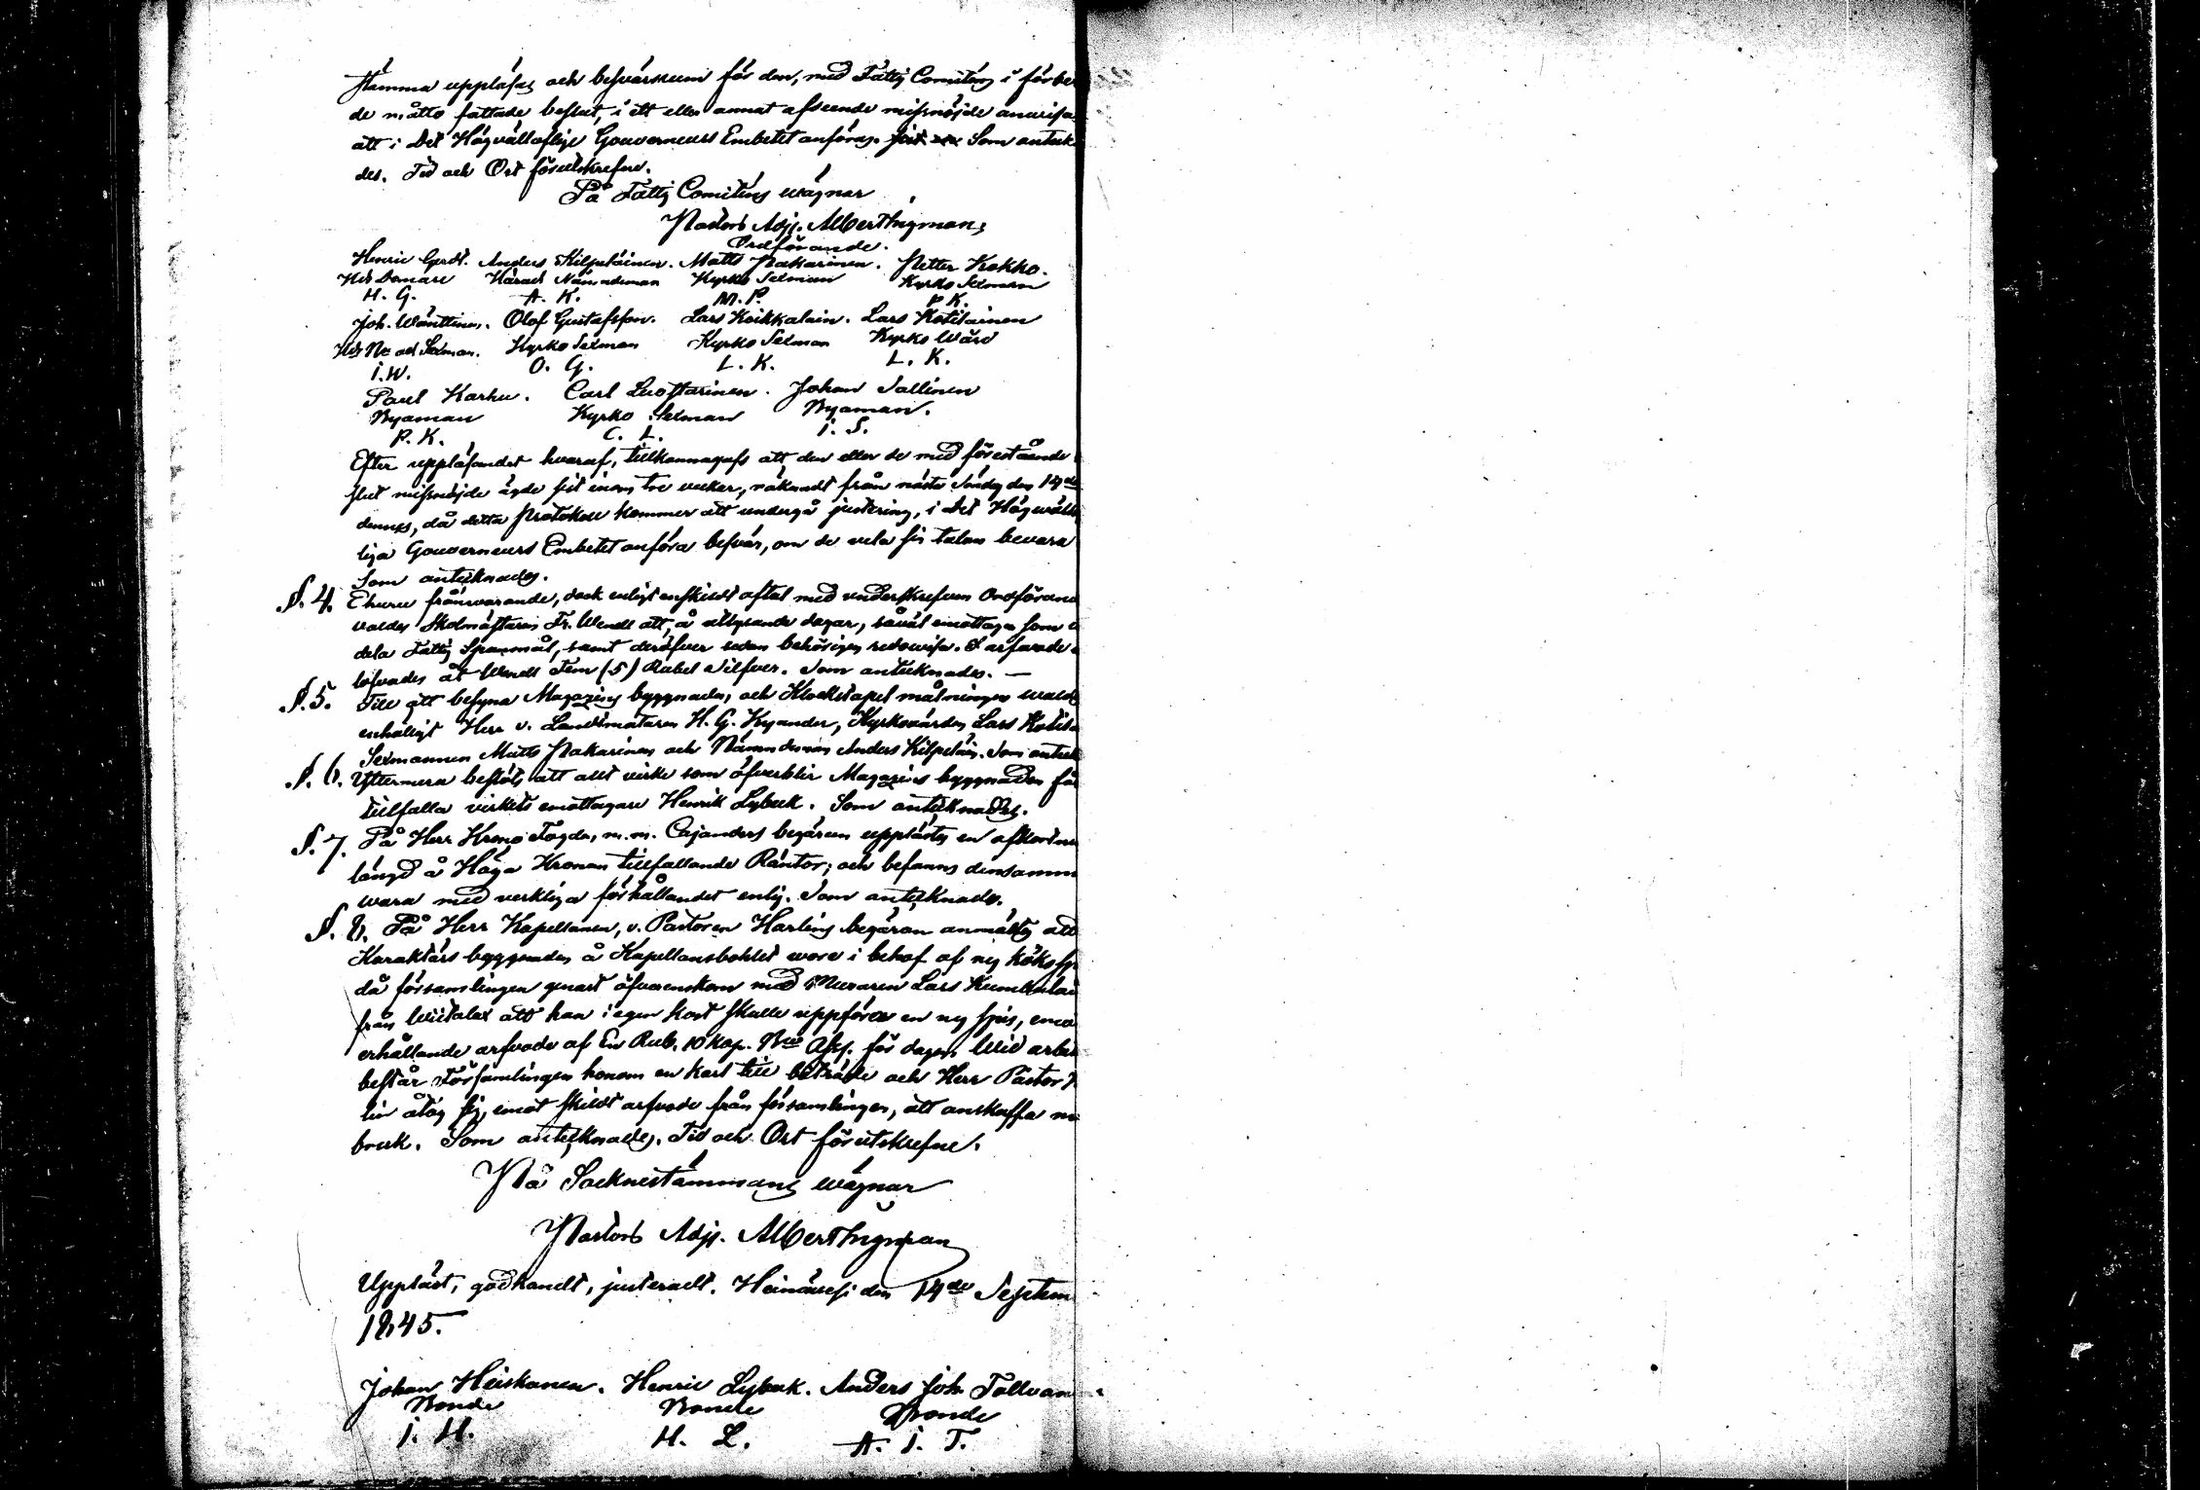 stämma uppläsas och besvärsrum för den, med Fattig Comiténs i förbe
de måtto fattade beslut, i ett eller annat afseende missnöjde anvisa
att i Det Högvällofliga Gouverneurs Embetet anföras. Som anteck
des. Tid och Ort förutskrefne.
På Fattig Comiténs wägnar
Pastors Adj. Albert Ingman,
Ordförande.
Henric Gerdt. Anders Kilpeläinen. Matts Pakarinen. Petter Kokko.
Hds Domare Härads Nämndeman Kyrko Sexman Kyrko Sexman
H. G. A. K. M. P. P. K.
Joh. Wänttinen. Olof Gustafsson. Lars Koikkalain. Lars Kotilainen
Kyrko Sexman Kyrko Sexman Kyrko Wärd
I. W. O. G. L. K. L. K.
Paul Karhu. Carl Luostarinen. Johan Sallinen
Byaman Kyrko Sexman Byaman.
P. K. C. L. I. S.
Efter uppläsandet hwaraf, tillkännagafs att den eller de med förestående
slut missnöjde ägde sist inom tre veckor, räknadt från nästa Söndag den 14de
dennes, då detta protokoll kommer att undergå justering, i Det Högwäll
liga Gouverneurs Embetet anföra besvär, om de vela sin talan bevara
Som antecknades.
§. 4. Ehuru frånvarande, dock enligt enskildt aftal med underskrefven Ordförand
valdes Skolmästaren Fr. Wendt att, å utlysande dagar, såväl emottaga som u
dela Fattig Spannmål, samt deröfver sedan behörigen redowisa. I arfvode
löfvades åt Wendt Fem (5) Rubel Silfver. Som antecknades. —
§. 5. Till att besyna Magazins byggnaden och Klockstapel målningen walde
enhälligt Herr v. Landtmätaren H. G. Kyander, Kyrkovärden Lars Kotila
Sexmannen Matts Pakarinen och Nämndeman Anders Kilpeläin. Som anteck
§. 6. Yttermera beslöts att allt virke som öfverblir Magazins byggnaden får
tillfalla virkets emottagare Henrik Lybeck. Som antecknades.
§. 7. På Herr Krono Fogden, m. m. Cajanders begäran upplästes en afkortn
längd å Höga Kronan tillfallande Räntor; och befanns densamm
wara med verkliga förhållandet enlig. Som antecknades.
§. 8. På Herr Kapellanen, v. Pastoren Harlins begäran anmältes att
Karaktärs byggnaden å Kapellansbohlet wore i behof af ny köks sp
då församlingen genast öfverenskom med Muraren Lars
från att han i egen kost skulle uppföra en ny spis, emo
erhållande arfvode af En Rub. 10 kop. Bco Ass. för dagen. Wid arbe
består Församlingen honom en karl till biträde och Herr Pastor H
lin åtog sig, emot skildt arfvode från församlingen, att anskaffa m
bruk. Som antecknades. Tid och Ort förutskrefne.
På Socknestämmans wägnar
Pastors Adj. Albert Ingman
Uppläst, godkändt, justeradt. Heinävesi den 14de Septem
1845.
Johan Heiskanen. Henric Lybeck. Anders Joh. Tallvan
Bonde Bonde Bonde
I. H. H. L. A. I. T.